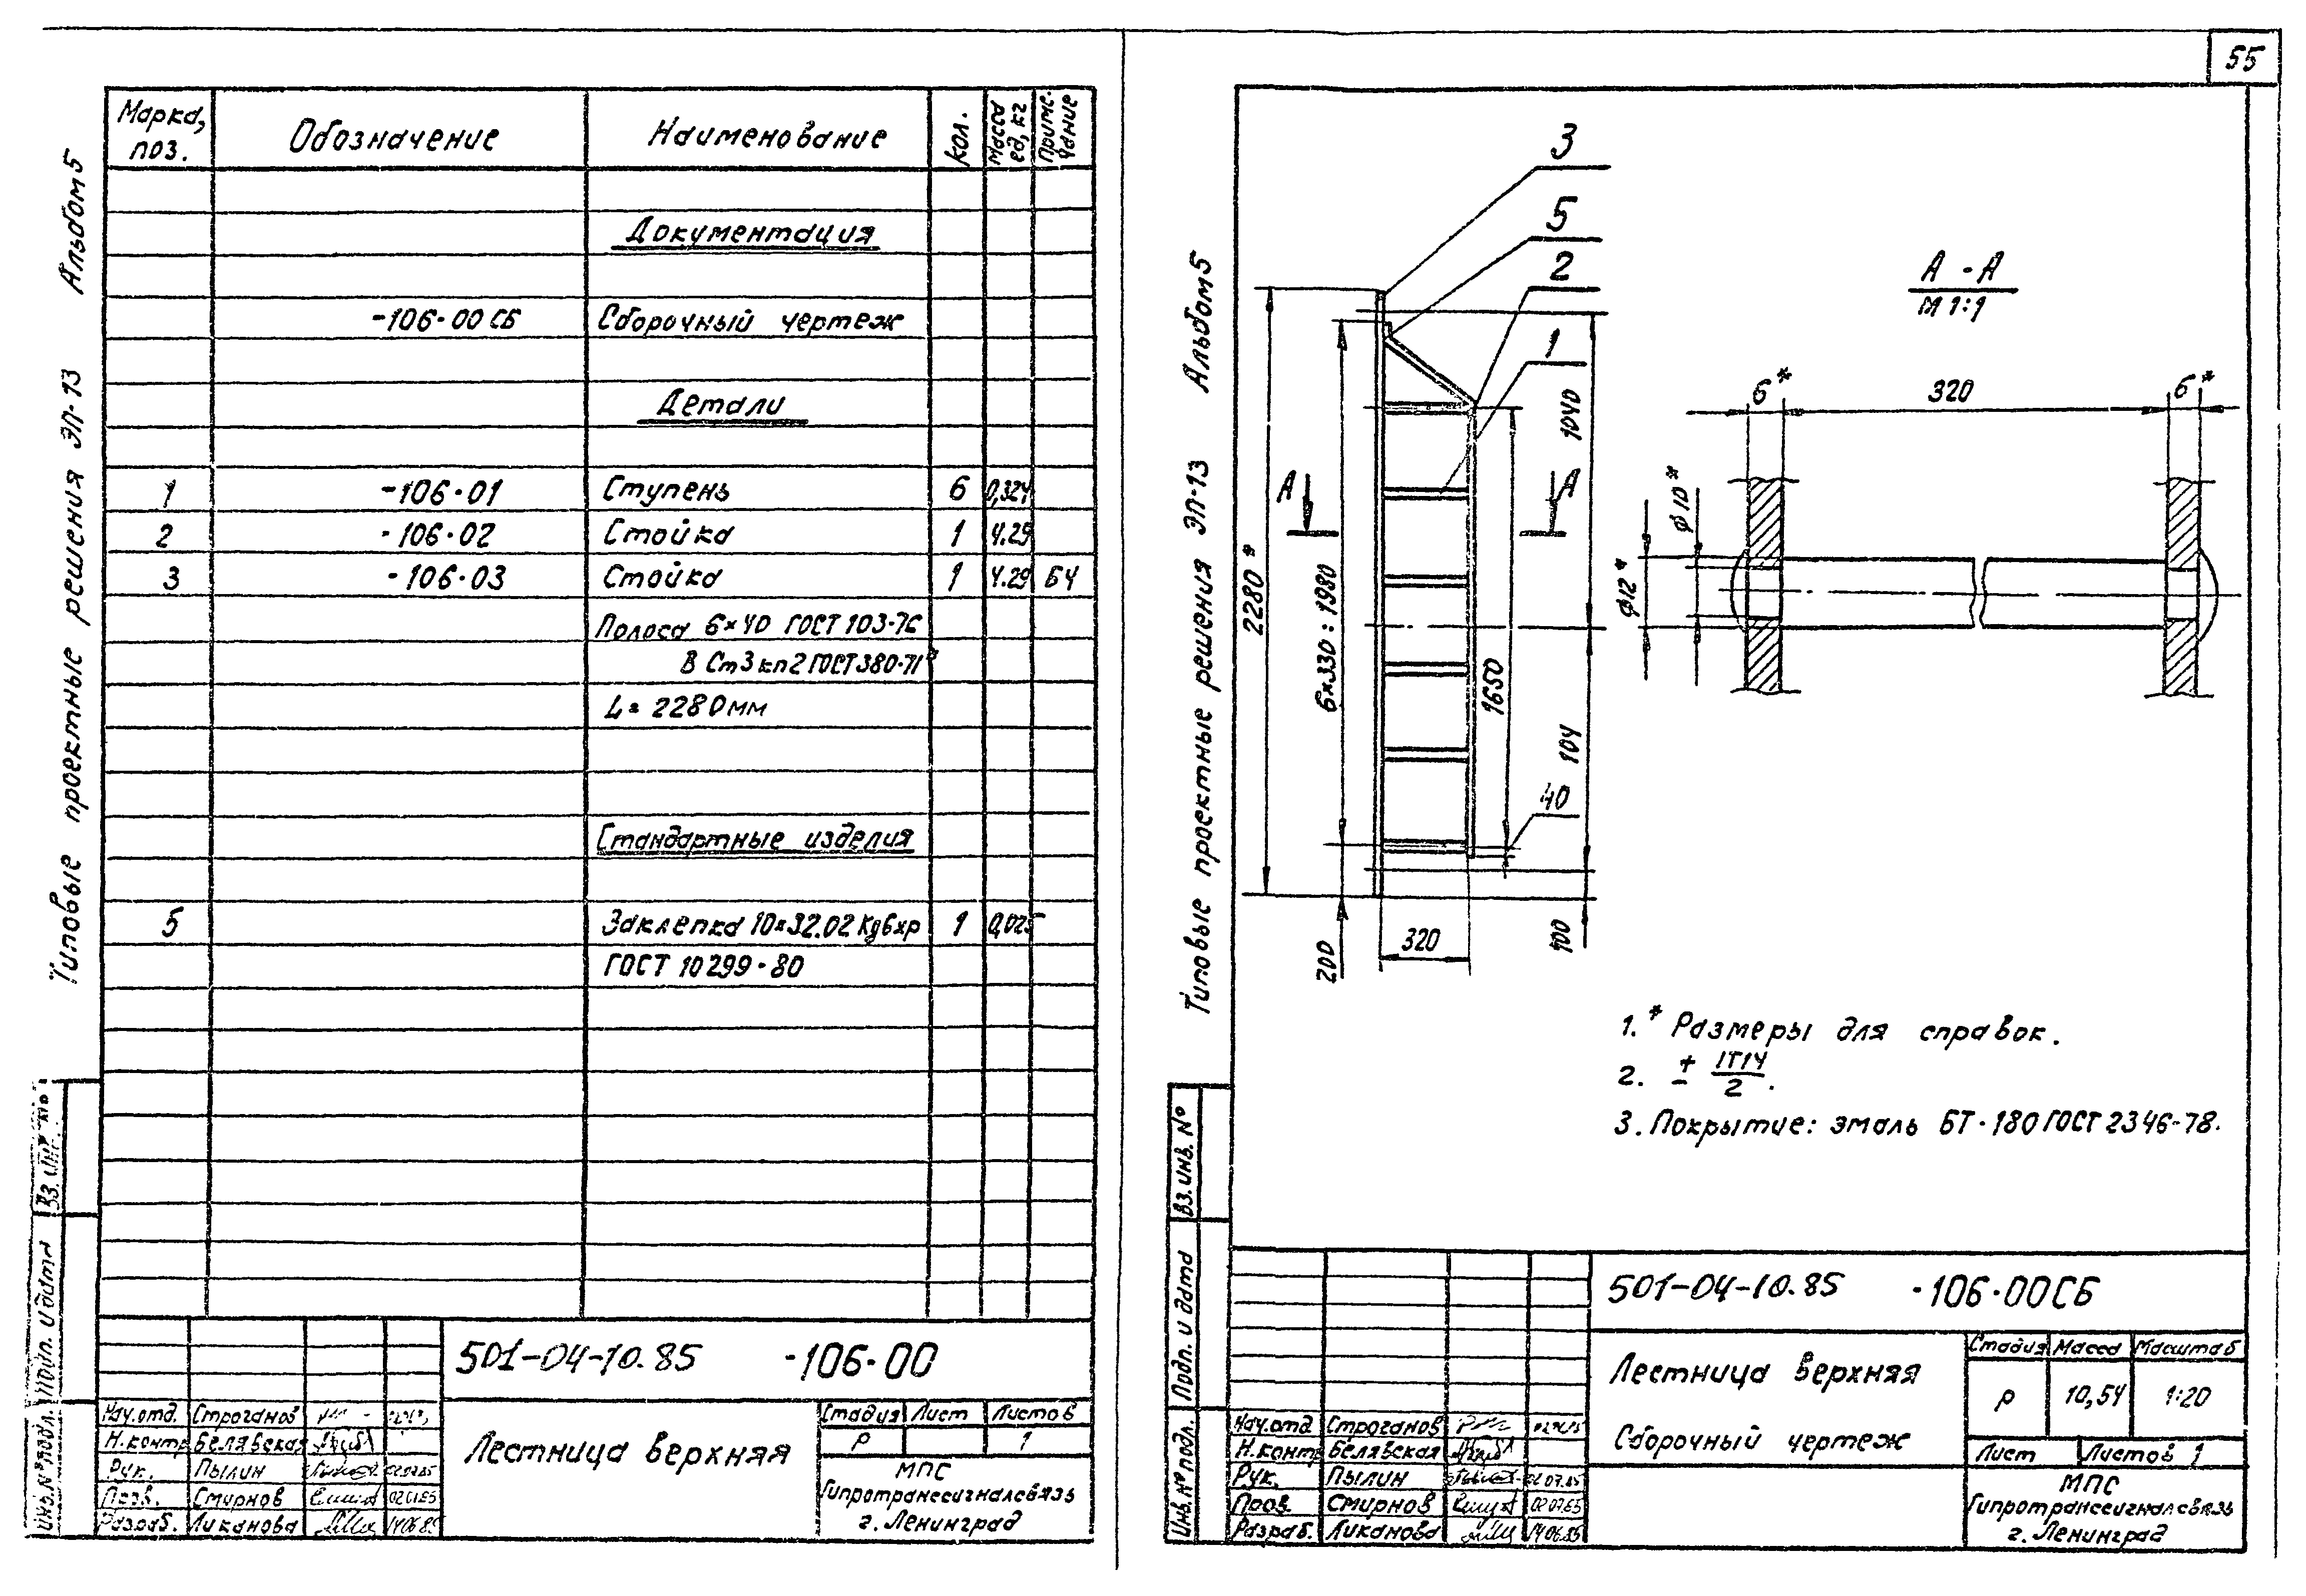 55
Типовые проектные решения ЭП-13 Альбом 5
Марка, поз. Обозначение Наименование Кол. Масса ед, кг Примечание
Документация
-106.00 СБ Сборочный чертеж
Детали
1 -106.01 Ступень 6 0,324
2 -106.02 Стойка 1 4.29
3 -106.03 Стойка 1 4.29 БЧ
Полоса 6×40 ГОСТ 103-76
В Ст3кп2 ГОСТ 380-71*
L= 2280мм
Стандартные изделия
5 Заклепка 10×32.02 1 0,025
ГОСТ 10299-80
Подп. и дата
Инв.№подл.
501-04-10.85 -106.00
Лестница верхняя
Стадия Лист Листов
Р 1
МПС
Гипротранссигналсвязь
г. Ленинград
Нач.отд. Строганов
Н.контр Белявская
Рук. Пылин
Пров. Смирнов
Разраб. Ликанова 14.06.85
Типовые проектные решения ЭП-13 Альбом 5
3
5
2
1
А А
2280*
6×330=1980
1650
1040
104
40
100
200
320
А-А
М 1:1
6* 320 6*
ϕ10*
ϕ12*
1.* Размеры для справок.
2. ± IT14/2.
3. Покрытие: эмаль БТ-180 ГОСТ 2346-78.
Вз.инв.№
Подп. и дата
Инв.№подл.
501-04-10.85 -106.00СБ
Лестница верхняя
Сборочный чертеж
Стадия Масса Масштаб
Р 10,54 1:20
Лист Листов 1
МПС
Гипротранссигналсвязь
г. Ленинград
Нач.отд Строганов
Н.контр Белявская
Рук. Пылин 02.07.85
Пров. Смирнов 02.07.85
Разраб. Ликанова 14.06.85